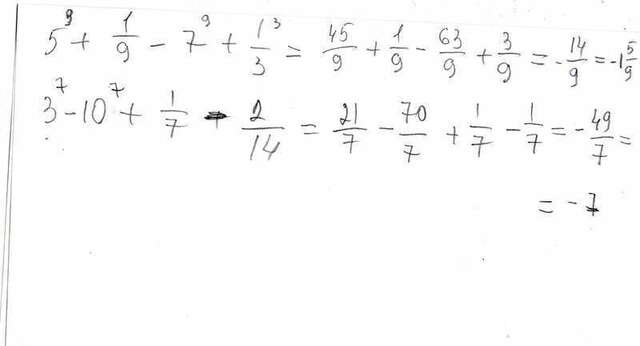 5⁹ + 1/9 - 7⁹ + 1³/3 = 45/9 + 1/9 - 63/9 + 3/9 = -14/9 = -1 5/9
3⁷ - 10⁷ + 1/7 - 2/14 = 21/7 - 70/7 + 1/7 - 1/7 = -49/7 =
= -7